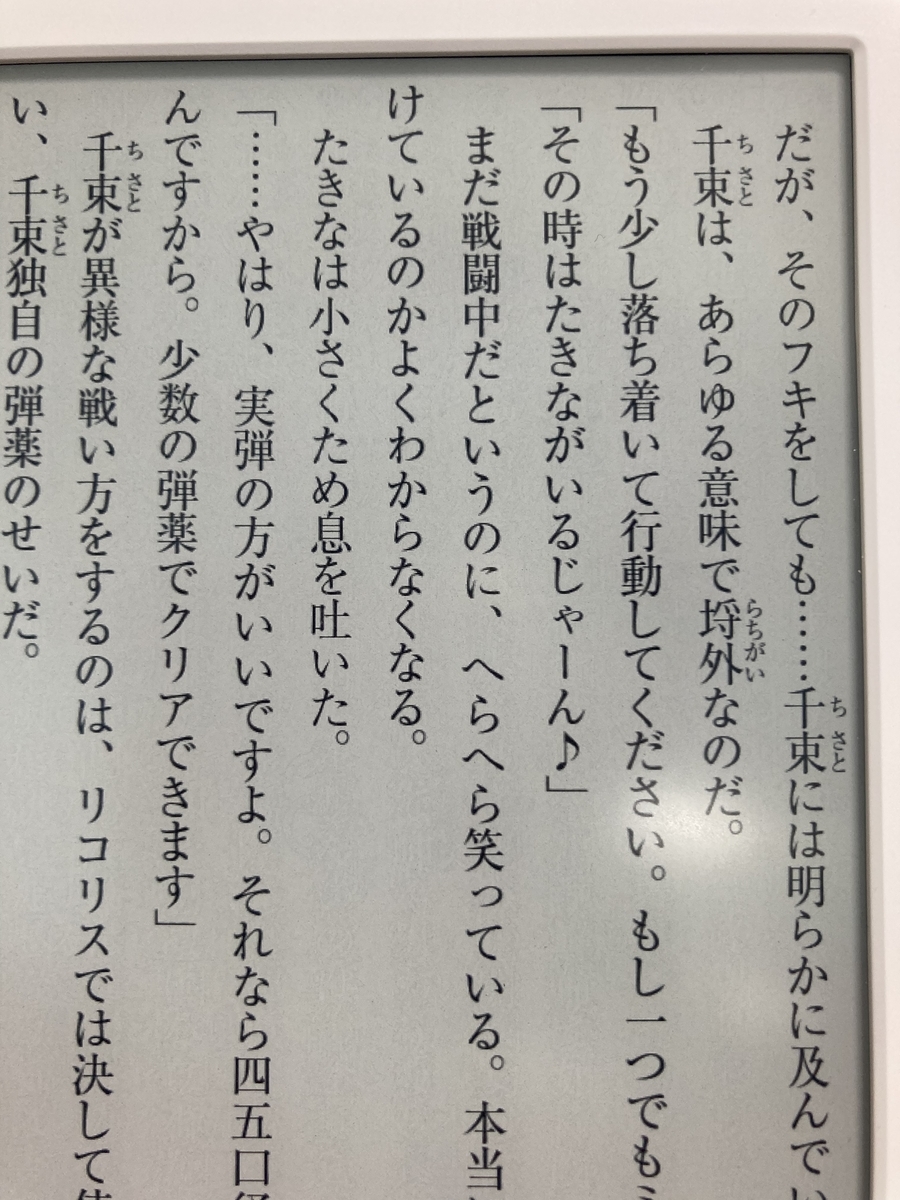 だが、そのフキをしても……千束には明らかに及んでい
千束は、あらゆる意味で埒外なのだ。
「もう少し落ち着いて行動してください。もし一つでも
「その時はたきながいるじゃーん♪」
まだ戦闘中だというのに、へらへら笑っている。本当
けているのかよくわからなくなる。
たきなは小さくため息を吐いた。
「……やはり、実弾の方がいいですよ。それなら四五口
んですから。少数の弾薬でクリアできます」
千束が異様な戦い方をするのは、リコリスでは決して
い、千束独自の弾薬のせいだ。